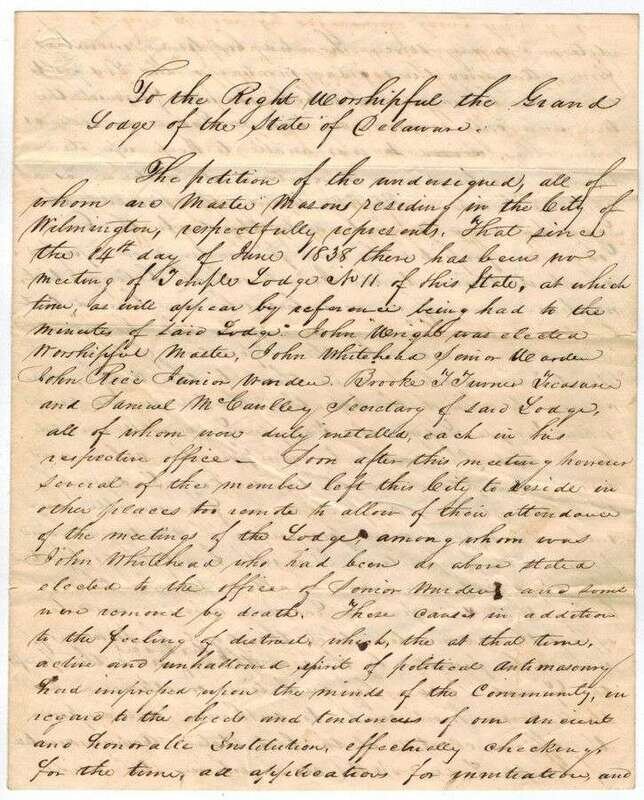 To the Right Worshipful the Grand
Lodge of the State of Delaware.
The petition of the undersigned, all of
whom are Master Masons residing in the City of
Wilmington, respectfully represents, That since
the 14th day of June 1838 there has been no
meeting of Temple Lodge No 11 of this State, at which
time, as will appear by reference being had to the
minutes of said Lodge. John Wright was elected
Worshipful Master, John Whitehead Senior Warden
John Rice Junior Warden. Brooke T Turner Treasurer
and Samuel McCaulley Secretary of said Lodge,
all of whom were duly installed, each in his
respective office — Soon after this meeting however
several of the members left this City to reside in
other places too remote to allow of their attendance
of the meetings of the Lodge, among whom was
John Whitehead who had been as above stated
elected to the office of Senior Warden, and some
were removed by death. These causes in addition
to the feeling of distrust, which, the at that time,
active and unhallowed spirit of political Antimasonry
had impressed upon the minds of the Community, in
regard to the objects and tendencies of our ancient
and honorable Institution, effectually checking,
for the time, all applications for initiation, and